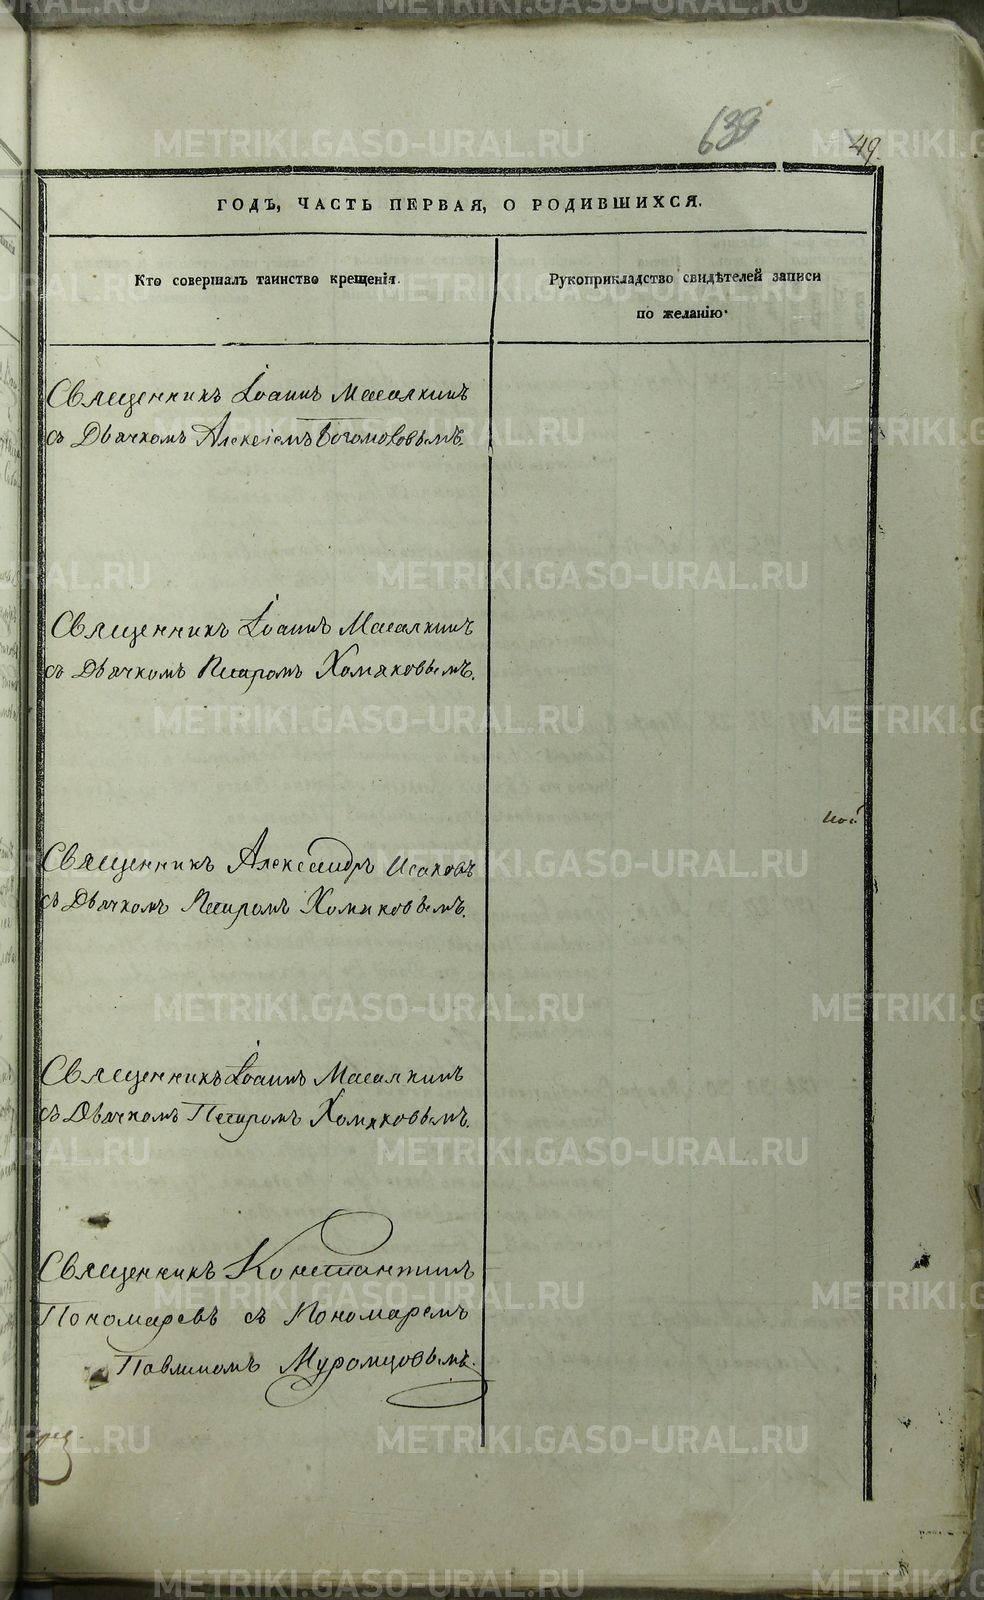 639
49.
ГОДЪ, ЧАСТЬ ПЕРВАЯ, О РОДИВШИХСЯ.
Кто совершалъ таинство крещенія.
Рукоприкладство свидѣтелей записи
по желанію.
Священникъ Іоаннъ Масалкинъ
съ Дьячкомъ Алексіемъ Богомоловымъ.
Священникъ Іоаннъ Масалкинъ
съ Дьячкомъ Петромъ Хомяковымъ.
Священникъ Александръ Исаковъ
съ Дьячкомъ Петромъ Хомяковымъ.
Священникъ Іоаннъ Масалкинъ
съ Дьячкомъ Петромъ Хомяковымъ.
Священникъ Константинъ
Пономаревъ съ Пономаремъ
Павлиномъ Муромцовымъ.
METRIKI.GASO-URAL.RU